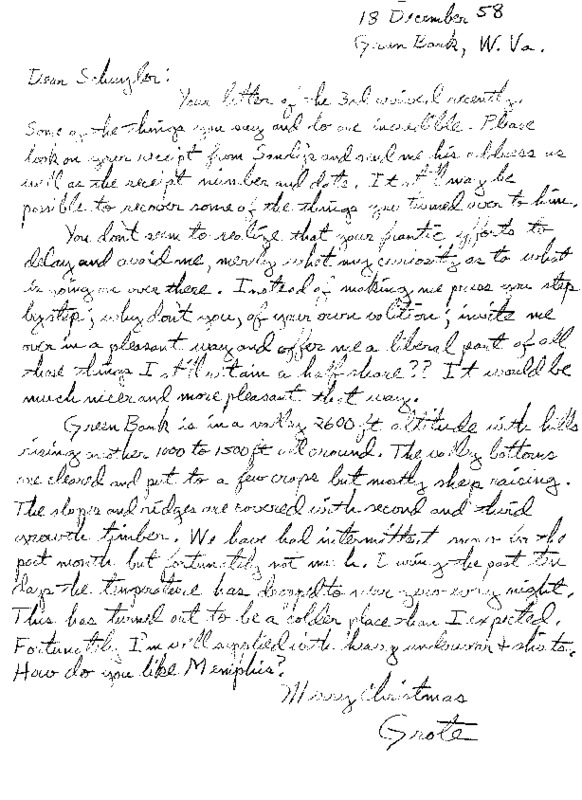 18 December 58
Green Bank, W. Va.
Dear Schuyler:
Your letter of the 3rd arrived recently.
Some of the things you say and do are incredible. Please
look on your receipt from and send me his address as
well as the receipt number and date. It still may be
possible to recover some of the things you turned over to him.
You don't seem to realize that your frantic efforts to
delay and avoid me, merely whet my curiosity as to what
is going on over there. Instead of making me press you step
by step; why don't you, of your own volition; invite me
over in a pleasant way and offer me a liberal part of all
those things I still retain a half share?? It would be
much nicer and more pleasant that way.
Green Bank is in a valley 2600 ft altitude with hills
rising another 1000 to 1500 ft all around. The valley bottoms
are cleared and put to a few crops but mostly sheep raising.
The slopes and ridges are covered with second and third
growth timber. We have had intermittent snow for the
past month but fortunately not much. During the past ten
days the temperature has dropped to near zero every night.
This has turned out to be a colder place than I expected.
Fortunately I'm well supplied with heavy underwear & shirts.
How do you like Memphis?
Merry Christmas
Grote